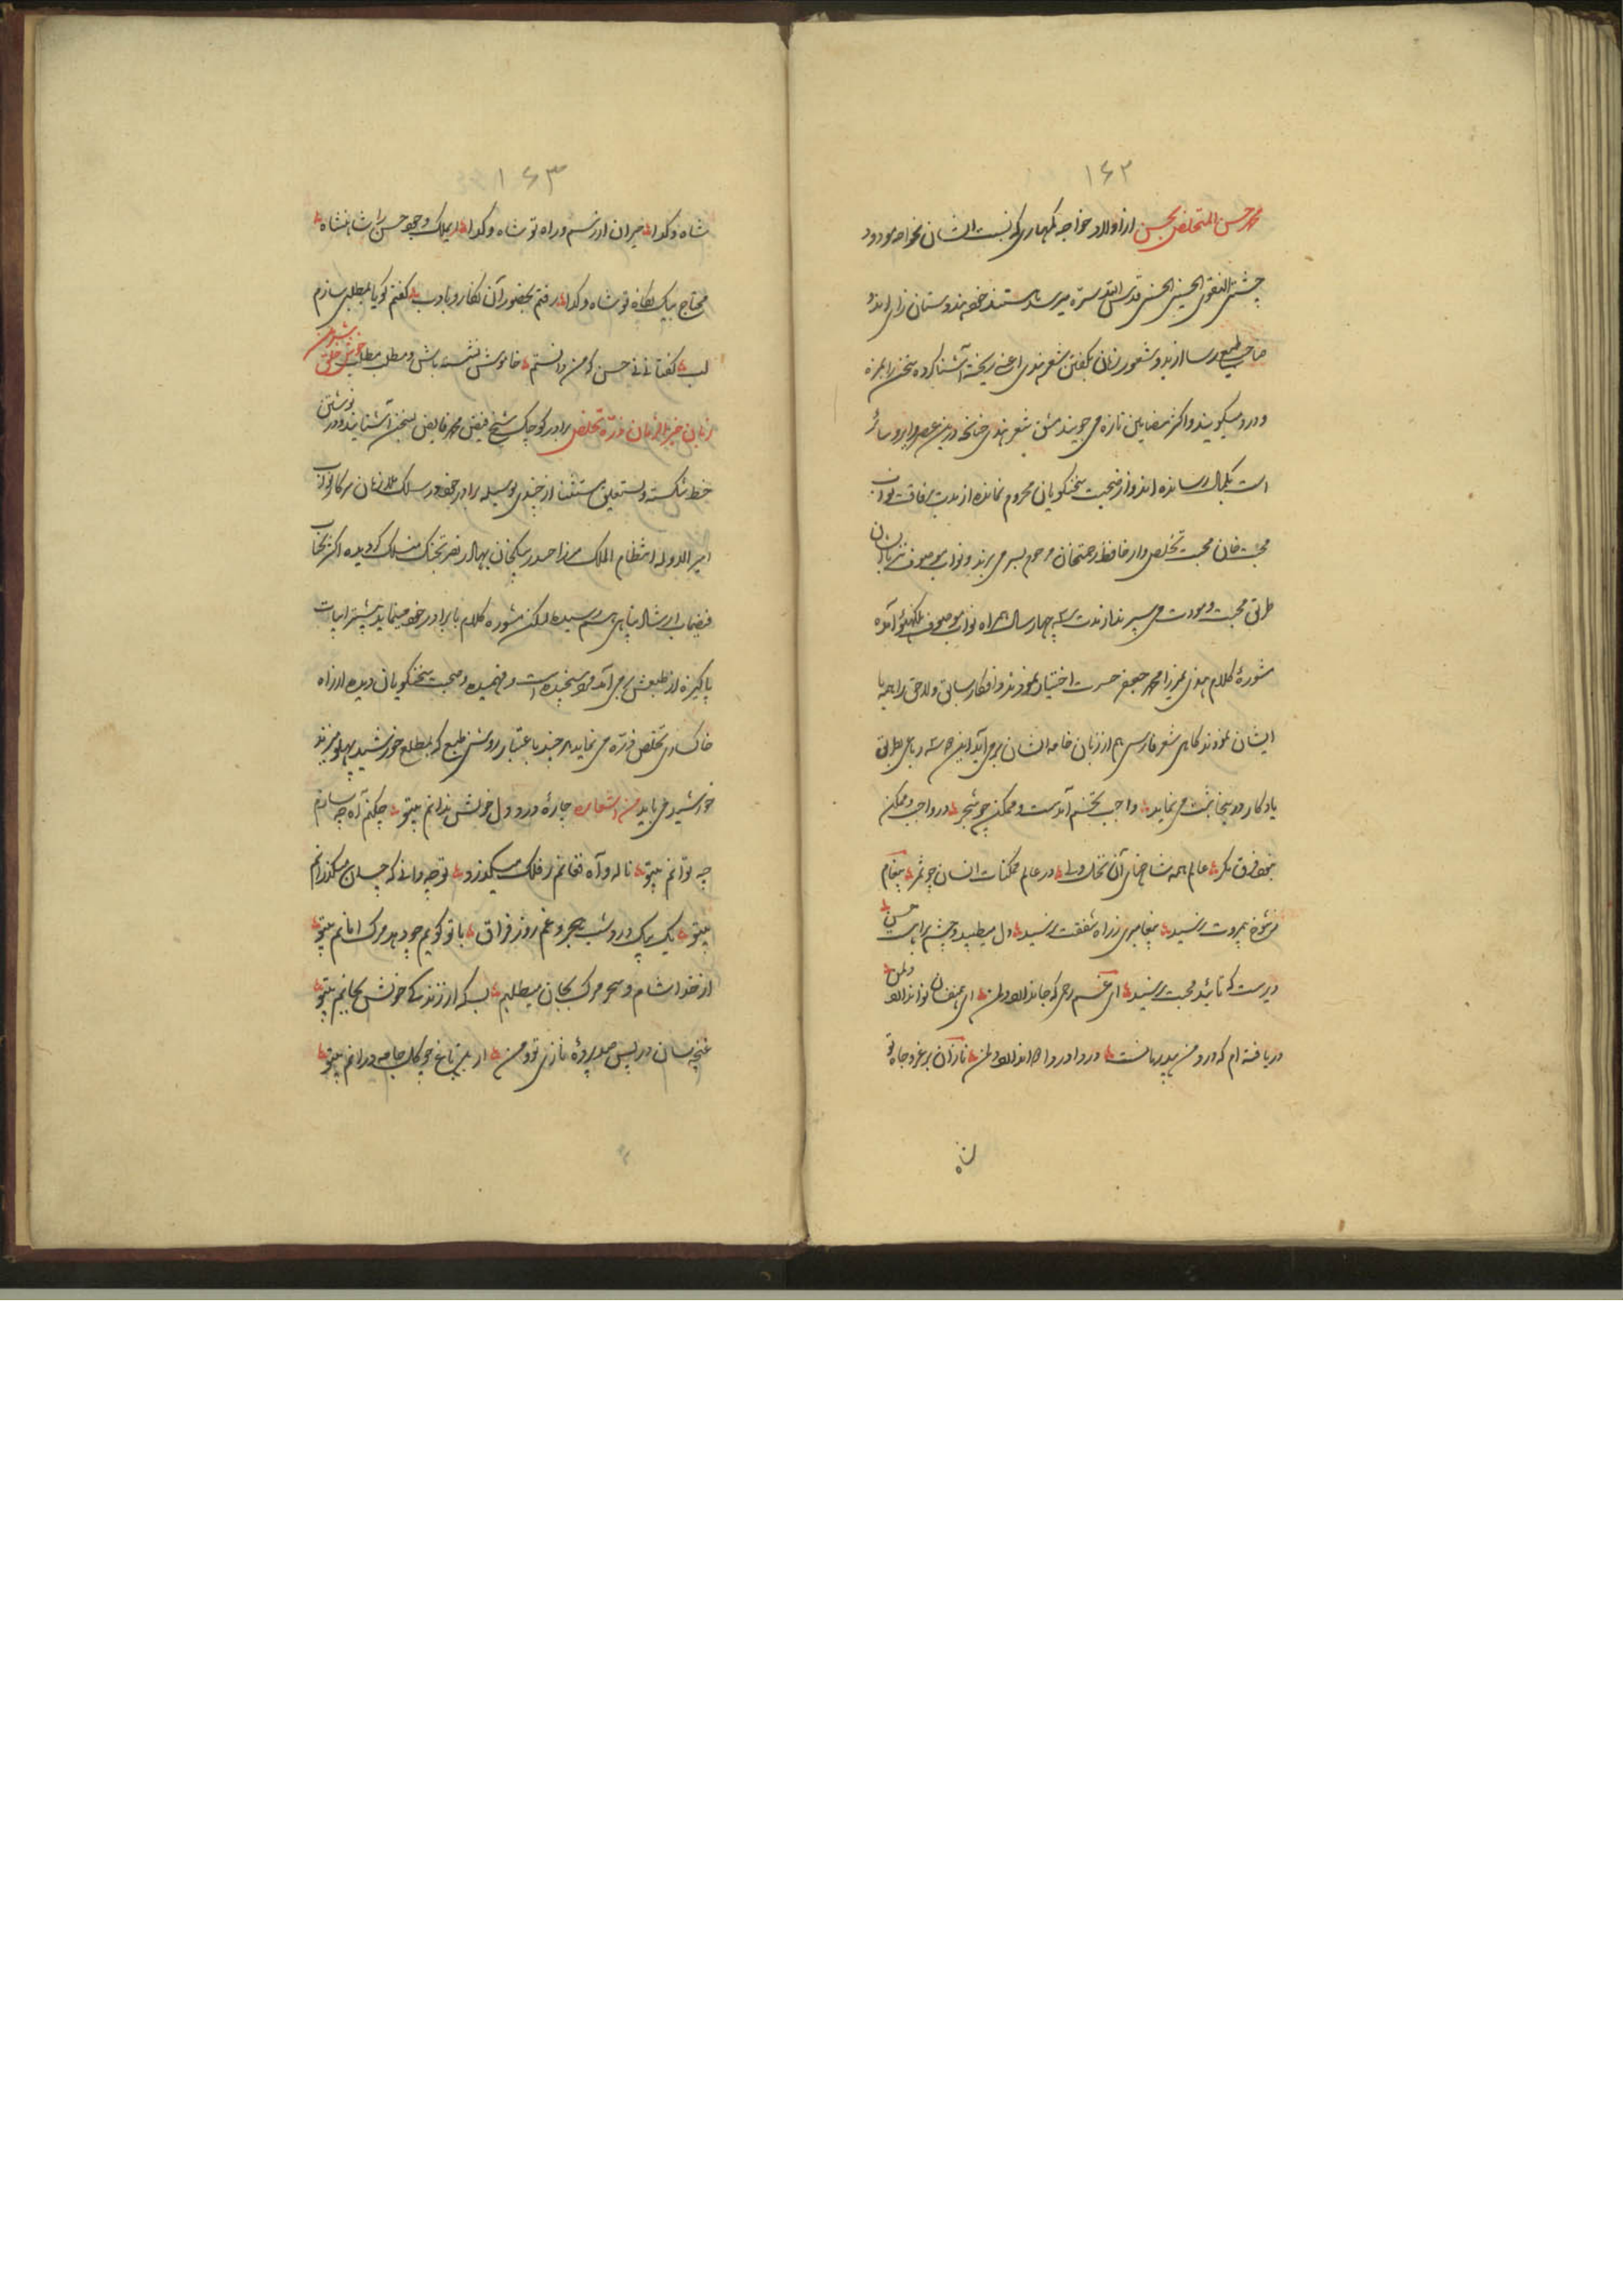 ۱۶۲
محمد حسن المتخلص بحسن از اولاد خواجه کمهاری که نسبت ایشان بخواجه مودود
چشتی النقوی الحسینی الحسنی قدس الله سره میرسد هستند خود هندوستان زای اند و
صاحب طبع رسا از بدو شعور زبان بگفتن شعر هندی اعنی ریخته آشنا کرده سخن را بمزه
و درد میگویند و اکثر مضامین تازه می جویند مشق شعر هندی چنانچه درین عصر دایر و سائر
است بکمال رسانده اند و از صحبت سخنگویان محروم نمانده از مدت برفاقت نواب
محبت خان محبت تخلص ولد حافظ رحمتخان مرحوم بسر می برند و نواب موصوف نیز با ایشان
طریق محبت و مودت می سپرند از مدت سه چهار سال همراه نواب موصوف بلکهنؤ آمده
مشورهٔ کلام هندی بمیرزا محمد جعفر حسرت اختیار نمودند و افکار سابق و لاحق را همه با
ایشان نمودند گاهی شعر فارسی هم از زبان خامه ایشان برمی آید این سه رباعی بطریق
یادگار درینجا ثبت می نماید واجب تخم آمدست و ممکن چو شجر در واجب و ممکن
بخود فرق نگر عالم همه شاخهای آن نخل ولی در عالم ممکنات انسان چو ثمر پیغام
ز شوخ بیمروت نرسید پیغامبری ز راه شفقت نرسید دل میطپد و چشم براهست حسن
دیرست که تائید محبت نرسید ای غم رحمی که جاندادم و لمن ای همنفسان نواندادم و لمن
دریافته ام که درد من بیدرمانست دردا و دوا نداندادم و لمن نازان برعز و جاه تو
۱۶۳
شاه و گدا حیران از رسم و راه تو شاه و گدا ای بملک وجود حسن را شاهنشاه
محتاج بیک نگاه تو شاه و گدا رفتم بحضور آن نگار و با ادب گفتم گویا بمطلبی سازم
لب گفتا نی نی حسن که من دانستم خاموش نشسته باش و مطلب مطلب
زبان ذره تخلص برادر کوچک شیخ فیض محمد فایض بسخن آشنایند و در نوشتن
خط شکسته و نستعلیق مستثنا از چندی بوسیله برادر خود در سلک ملازمان سرکار نواب
امیر الدوله انتظام الملک میرزا حیدر بیگخان بهادر نصرتجنگ منسلک گردیده اکثر بجناب
فیضمآب ارشاد پناهی هم رسیده و لیکن مشوره کلام با برادر خود مینماید بیشتر ابیات
پاکیزه از طبعش برمی آید مرد سنجیده است و فهمیده و صحبت سخنگویان دیده از راه
خاکساری تخلص ذره می نماید هر چند باعتبار روشنی طبع که بمطلع خورشید پهلو میزند
خورشید می باید من اشعاره چارهٔ درد دل خویش ندانم بیتو چکنم آه چه سازم
چه توانم بیتو ناله و آه و فغانم ز فلک میگذرد تو چه دانی که چسان میگذرانم
بیتو یک بیک درد و شب هجر و غم روز فراق با تو گویم چو دهد مرگ امانم بیتو
از خدا شام و سحر مرگ بجان میطلبم بسکه از زندگی خویش بجانم بیتو
غنچه سان در پس صد پردهٔ نازی تو و من ای درین باغ چو گل جامه درانم بیتو